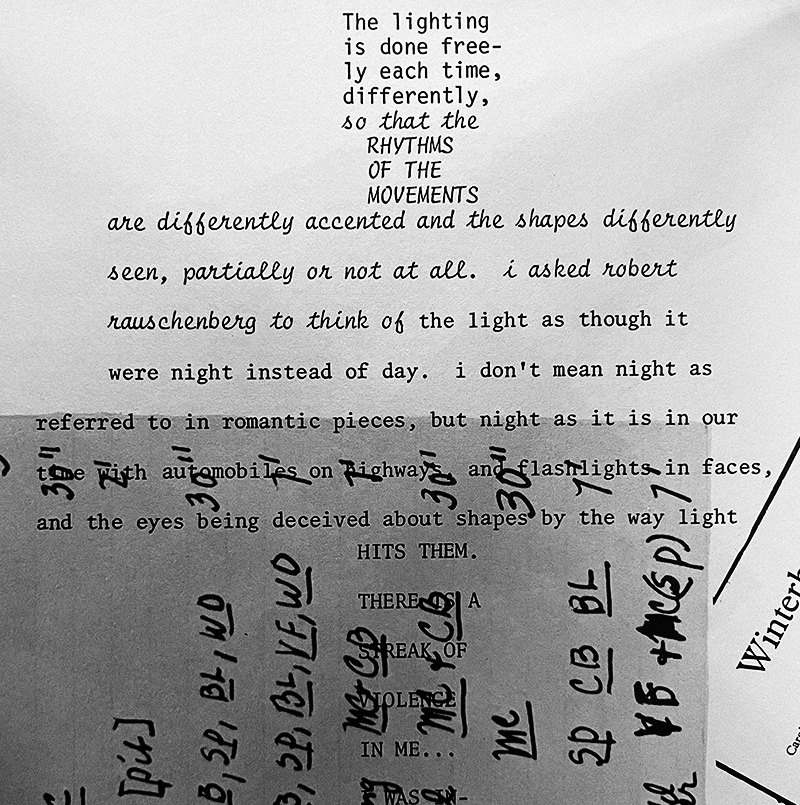 The lighting
is done free-
ly each time,
differently,
so that the
RHYTHMS
OF THE
MOVEMENTS
are differently accented and the shapes differently
seen, partially or not at all. i asked robert
rauschenberg to think of the light as though it
were night instead of day. i don't mean night as
referred to in romantic pieces, but night as it is in our
time with automobiles on highways, and flashlights in faces,
and the eyes being deceived about shapes by the way light
HITS THEM.
THERE IS A
STREAK OF
VIOLENCE
IN ME...
WAS IN-
30"
2'
30"
1'
1'
30"
30"
1'
1'
[pit]
B, SP, BL, WO
B, SP, BL, VF, WO
MC + CB
MC + CB
MC
SP CB BL
+ MC(SP)
Winterb